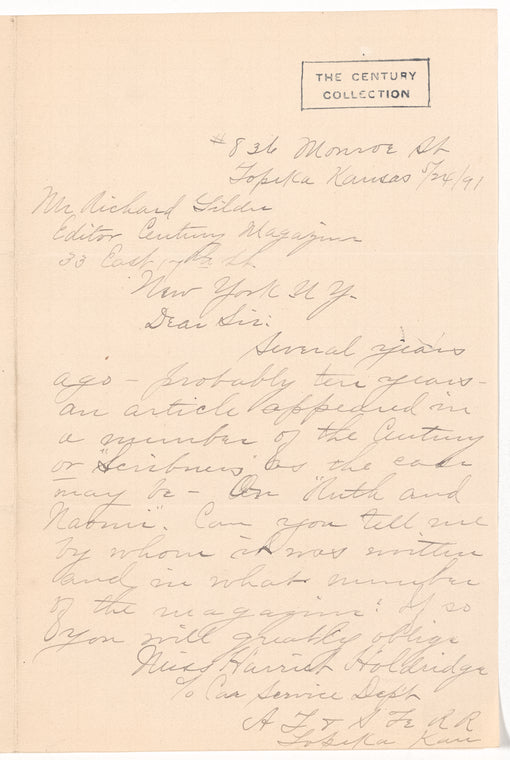 THE CENTURY
COLLECTION
#836 Monroe St
Topeka Kansas 5/24/91
Mr Richard Gilder
Editor Century Magazine
33 East 17th St
New York N Y.
Dear Sir:
Several years
ago - probably ten years -
an article appeared in
a number of the Century
or "Scribners" as the case
may be - On "Ruth and
Naomi". Can you tell me
by whom it was written
and in what number
of the magazine? If so
you will greatly oblige
Miss Harriet Holdridge
% Car Service Dept
A T & S Fe R R
Topeka Kan